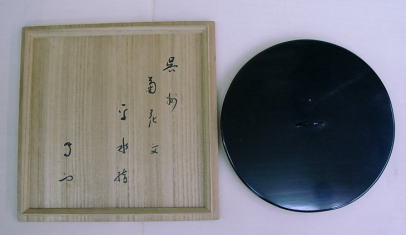 呉州
菊花文
平水指